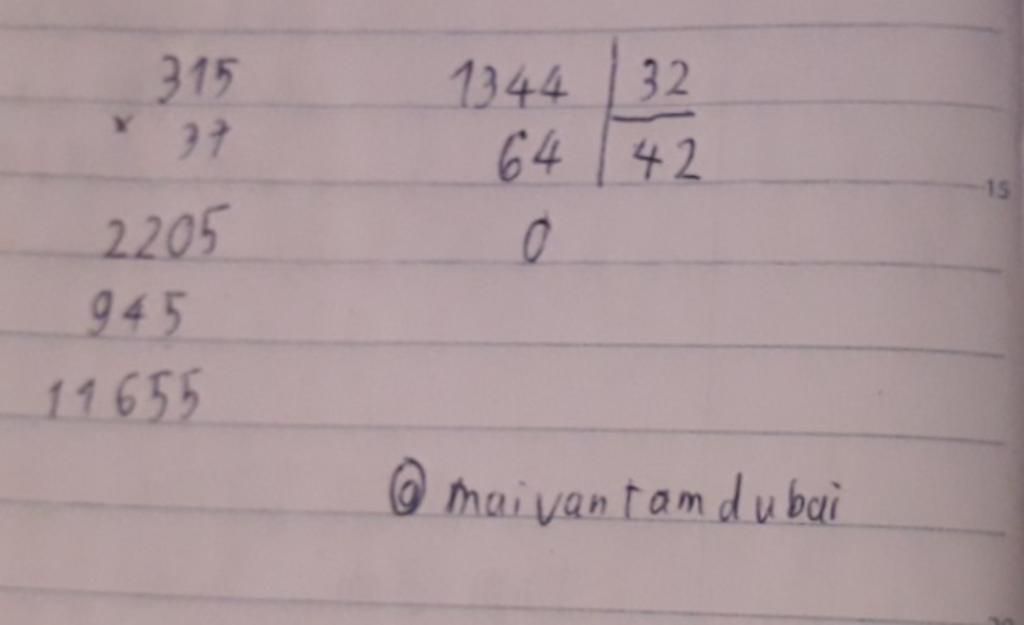 315
× 37
2205
945
11655
1344 | 32
64 | 42
0
@ maivantamdubai
15